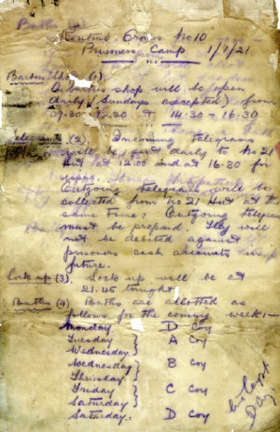 Routine Orders No 10
Prisoners Camp 1/1/21
Barbers Shop (1).
A barbers shop will be open
daily (Sundays excepted) from
12.30 & 14.30 - 16.30
Telegrams (2) Incoming telegrams
will be daily to No 21
Hut at 12.00 and at 16.30 for
Outgoing telegrams will be
collected from No 21 Hut at the
same time. Outgoing telegrams
must be prepaid. They will
not be debited against
prisoners cash accounts in
future.
Lock up (3). Lock up will be at
21.45 tonight.
Baths (4) Baths are allotted as
follows for the coming week:-
Monday D Coy
Tuesday } A Coy
Wednesday
Wednesday } B Coy
Thursday
Friday } C Coy
Saturday
Saturday. D Coy
Capt